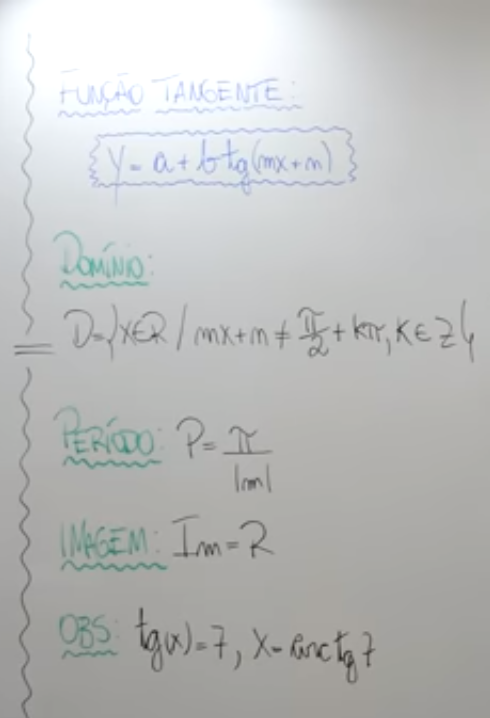 FUNÇÃO TANGENTE:
y = a + b tg(mx+n)
DOMÍNIO:
D={x∈R / mx+n ≠ π/2 + kπ, K ∈ Z}
PERÍODO: P = π/|m|
IMAGEM: Im = R
OBS: tg(x) = 7, x = arctg 7